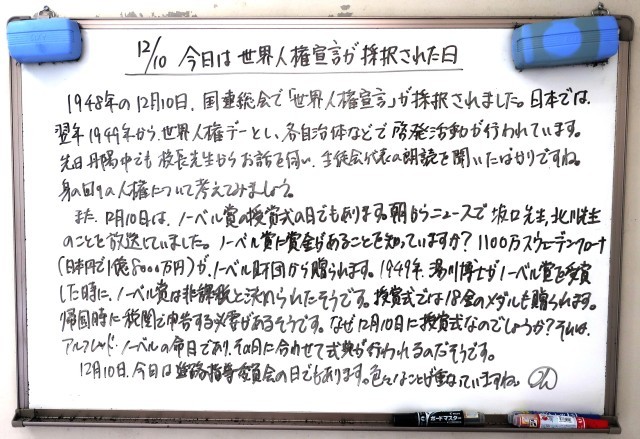 12/10 今日は世界人権宣言が採択された日
1948年の12月10日、国連総会で「世界人権宣言」が採択されました。日本では、
翌年1949年から世界人権デーとし、各自治体などで啓発活動が行われています。
先日丹陽中でも校長先生からお話を伺い、生徒会代表の朗読を聞いたばかりですね。
身の回りの人権について考えてみましょう。
また、12月10日は、ノーベル賞の授賞式の日でもあります。朝からニュースで坂口先生、北川先生
のことを放送していました。ノーベル賞に賞金があることを知っていますか？1100万スウェーデンクローナ
(日本円で1億8000万円)が、ノーベル財団から贈られます。1949年、湯川博士がノーベル賞を受賞
した時に、ノーベル賞は非課税と決められたそうです。授賞式では18金のメダルも贈られます。
帰国時に税関で申告する必要があるそうです。なぜ12月10日に授賞式なのでしょうか？それは、
アルフレッド・ノーベルの命日であり、その日に合わせて式典が行われるのだそうです。
12月10日、今日は進路指導委員会の日でもあります。色々なことが重なっていますね。
ボードマスター